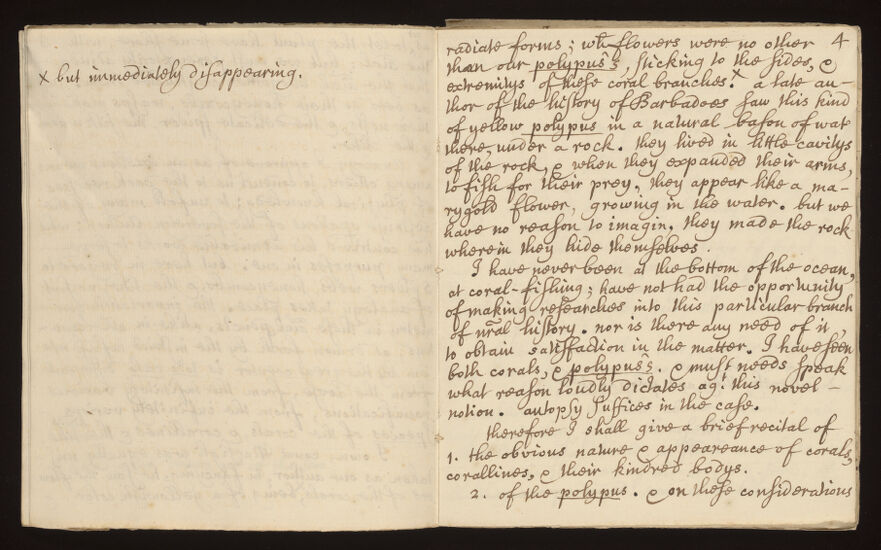 x but immediately disappearing.
4
radiate forms; wh flowers were no other
than our polypus's, sticking to the sides, &
extremitys of these coral branches.x a late au-
thor of the history of Barbadoes saw this kind
of yellow polypus in a natural bason of wat
there, under a rock. they lived in little cavitys
of the rock, & when they expanded their arms,
to fish for their prey, they appear like a ma-
rygold flower, growing in the water. but we
have no reason to imagin, they made the rock
wherein they hide themselves.
I have never been at the bottom of the ocean,
at coral-fishing; have not had the opportunity
of making researches into this particular branch
of nrãl history. nor is there any need of it,
to obtain satisfaction in the matter. I have seen
both corals, & polypus's. & must needs speak
what reason loudly dictates ag: this novel-
notion. autopsy suffices in the case.
therefore I shall give a brief recital of
1. the obvious nature & appeareance of corals,
corallines, & their kindred bodys.
2. of the polypus. & on these considerations